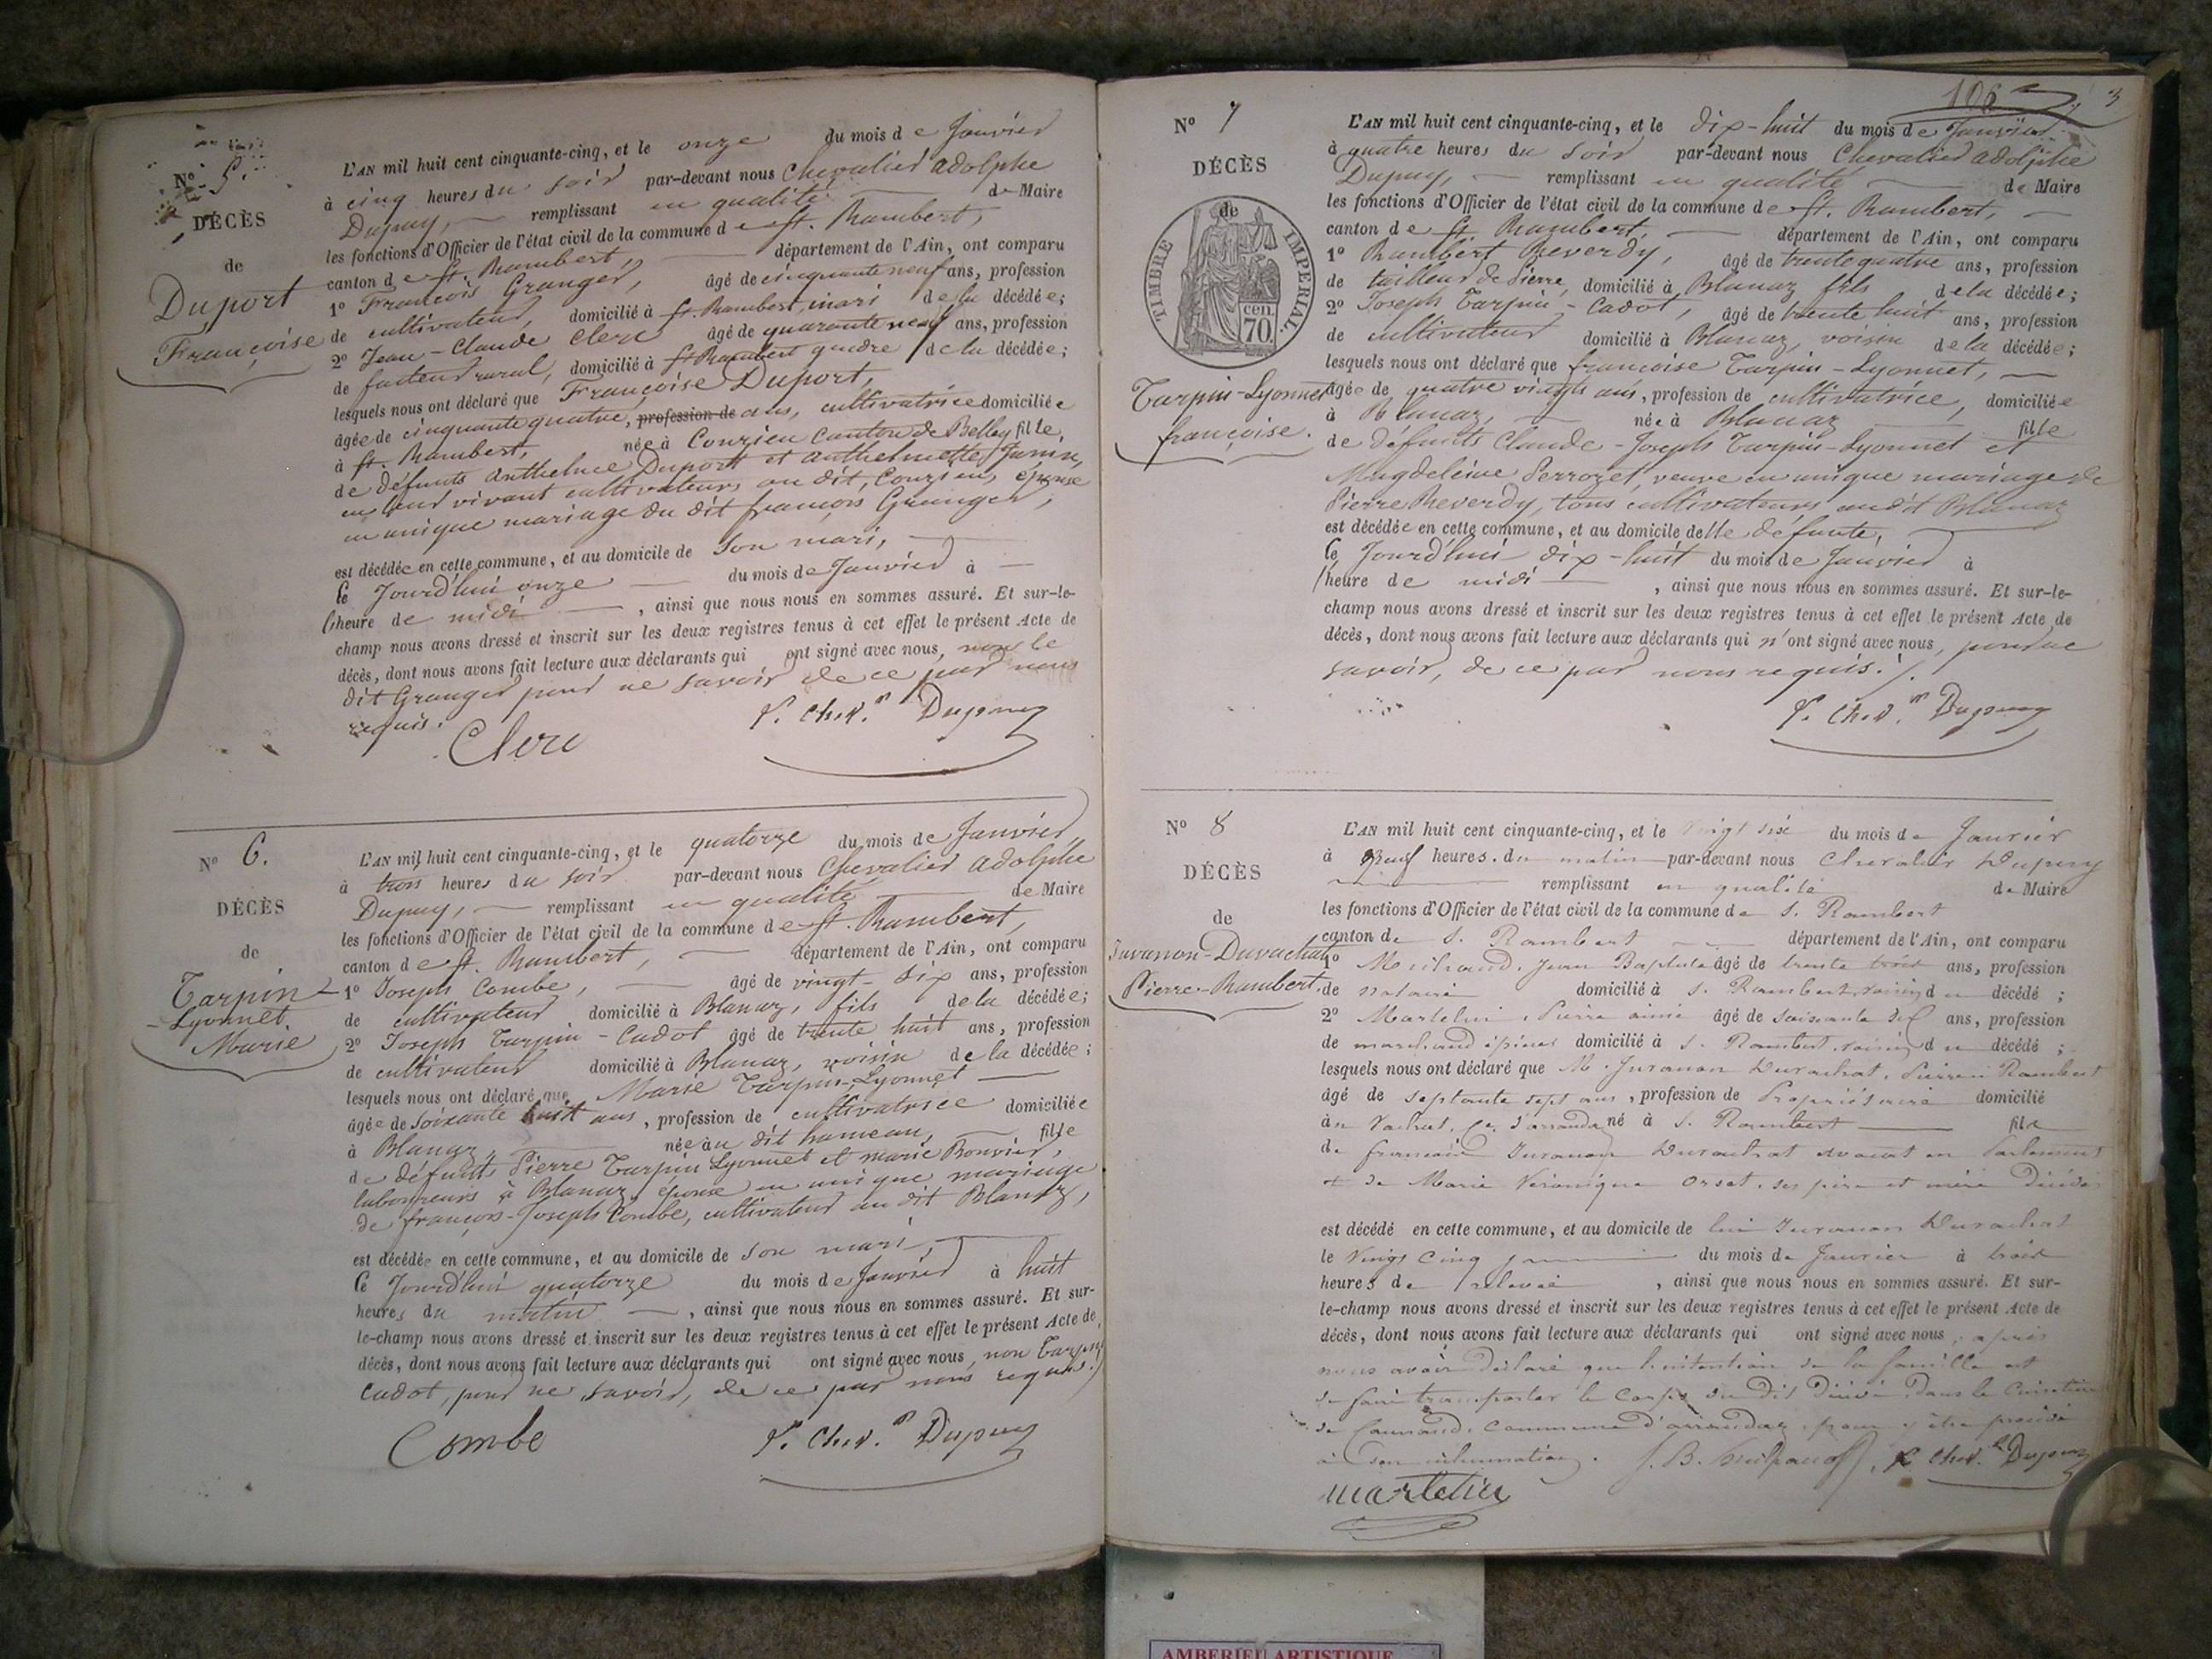 Nº 5.
DÉCÈS
de
Duport
Françoise
L'AN mil huit cent cinquante-cinq, et le onze du mois de Janvier
à cinq heures du soir par-devant nous Chevalier Adolphe
Dupuy, remplissant en qualité de Maire
les fonctions d'Officier de l'état civil de la commune de St. Rambert,
canton de St. Rambert, département de l'Ain, ont comparu
1º François Granger, âgé de cinquante neuf ans, profession
de cultivateur, domicilié à St. Rambert, mari de la décédée;
2º Jean-Claude Clerc âgé de quarante neuf ans, profession
de facteur rural, domicilié à St Rambert gendre de la décédée;
lesquels nous ont déclaré que Françoise Duport,
âgée de cinquante quatre, profession de ans, cultivatrice domiciliée
à St. Rambert, née à Conzieu Canton de Belley fille,
de défunts Anthelme Duport et Anthelmette
en leur vivant cultivateurs au dit Conzieu, épouse
en unique mariage du dit françois Granger,
est décédée en cette commune, et au domicile de son mari,
le Jourd'hui onze du mois de Janvier à
l'heure de midi, ainsi que nous nous en sommes assuré. Et sur-le-
champ nous avons dressé et inscrit sur les deux registres tenus à cet effet le présent Acte de
décès, dont nous avons fait lecture aux déclarants qui ont signé avec nous, non le
dit Granger pour ne savoir de ce par nous
requis.
Clerc
P. Chev.er Dupuy
Nº 6.
DÉCÈS
de
Tarpin
-Lyonnet.
Marie
L'AN mil huit cent cinquante-cinq, et le quatorze du mois de Janvier
à trois heures du soir par-devant nous Chevalier Adolphe
Dupuy, remplissant en qualité de Maire
les fonctions d'Officier de l'état civil de la commune de St. Rambert,
canton de St. Rambert, département de l'Ain, ont comparu
1º Joseph Combe, âgé de vingt-six ans, profession
de cultivateur domicilié à Blanaz, fils de la décédée;
2º Joseph Tarpin-Cadot âgé de trente huit ans, profession
de cultivateur domicilié à Blanaz, voisin de la décédée;
lesquels nous ont déclaré que Marie Tarpin-Lyonnet
âgée de soixante huit ans, profession de cultivatrice domiciliée
à Blanaz, née au dit hameau, fille
de défunts Pierre Tarpin Lyonnet et Marie Bonvier,
laboureurs à Blanaz, épouse en unique mariage
de françois-Joseph Combe, cultivateur au dit Blanaz,
est décédée en cette commune, et au domicile de son mari,
le Jourd'hui quatorze du mois de Janvier à huit
heures du matin, ainsi que nous nous en sommes assuré. Et sur-
le-champ nous avons dressé et inscrit sur les deux registres tenus à cet effet le présent Acte de
décès, dont nous avons fait lecture aux déclarants qui ont signé avec nous, non Tarpin
Cadot, pour ne savoir, de ce par nous requis./
Combe
P. Chev.er Dupuy
106 3
Nº 7
DÉCÈS
de
TIMBRE IMPERIAL.
cen.
70.
Tarpin-Lyonnet
françoise.
L'AN mil huit cent cinquante-cinq, et le dix-huit du mois de Janvier
à quatre heures du soir par-devant nous Chevalier Adolphe
Dupuy, remplissant en qualité de Maire
les fonctions d'Officier de l'état civil de la commune de St. Rambert,
canton de St Rambert, département de l'Ain, ont comparu
1º Rambert Reverdy, âgé de trente quatre ans, profession
de tailleur de Pierre, domicilié à Blanaz fils de la décédée;
2º Joseph Tarpin-Cadot, âgé de trente huit ans, profession
de cultivateur domicilié à Blanaz, voisin de la décédée;
lesquels nous ont déclaré que françoise Tarpin-Lyonnet,
âgée de quatre vingts ans, profession de cultivatrice, domiciliée
à Blanaz, née à Blanaz fille
de défunts Claude-Joseph Tarpin-Lyonnet et
Magdeleine Perrozet, veuve en unique mariage de
Pierre Reverdy, tous cultivateurs audit Blanaz
est décédée en cette commune, et au domicile de lle défunte,
le Jourd'hui dix-huit du mois de Janvier à
l'heure de midi, ainsi que nous nous en sommes assuré. Et sur-le-
champ nous avons dressé et inscrit sur les deux registres tenus à cet effet le présent Acte de
décès, dont nous avons fait lecture aux déclarants qui n'ont signé avec nous, pour ne
savoir, de ce par nous requis./.
P. Chev.er Dupuy
Nº 8
DÉCÈS
de
Juvanon-Duvachat
Pierre-Rambert.
L'AN mil huit cent cinquante-cinq, et le vingt six du mois de Janvier
à Neuf heures du matin par-devant nous Chevalier Dupuy
remplissant en qualité de Maire
les fonctions d'Officier de l'état civil de la commune de S. Rambert
canton de S. Rambert département de l'Ain, ont comparu
1º Jean Baptiste âgé de trente trois ans, profession
de notaire domicilié à S. Rambert, voisin du décédé;
2º Martelin, Pierre aimé âgé de soixante dix ans, profession
de marchand épicier domicilié à S. Rambert, voisin du décédé;
lesquels nous ont déclaré que M. Juvanon Duvachat, Pierre Rambert
âgé de septante sept ans, profession de Propriétaire domicilié
au Vachat, né à S. Rambert fils
de françois Juvanon Duvachat avocat en Parlement
et de Marie Véronique Orset, ses père et mère décédés
est décédé en cette commune, et au domicile de lui Juvanon Duvachat
le vingt cinq du mois de Janvier à trois
heures de relevée, ainsi que nous nous en sommes assuré. Et sur-
le-champ nous avons dressé et inscrit sur les deux registres tenus à cet effet le présent Acte de
décès, dont nous avons fait lecture aux déclarants qui ont signé avec nous, après
nous avoir déclaré que l'intention de la famille est
de faire transporter le corps du dit décédé dans le Cimetière
de commune d'arandaz, pour y être procédé
à son inhumation.
P. Chev.er Dupuy
Martelin
AMBERIEU ARTISTIQUE